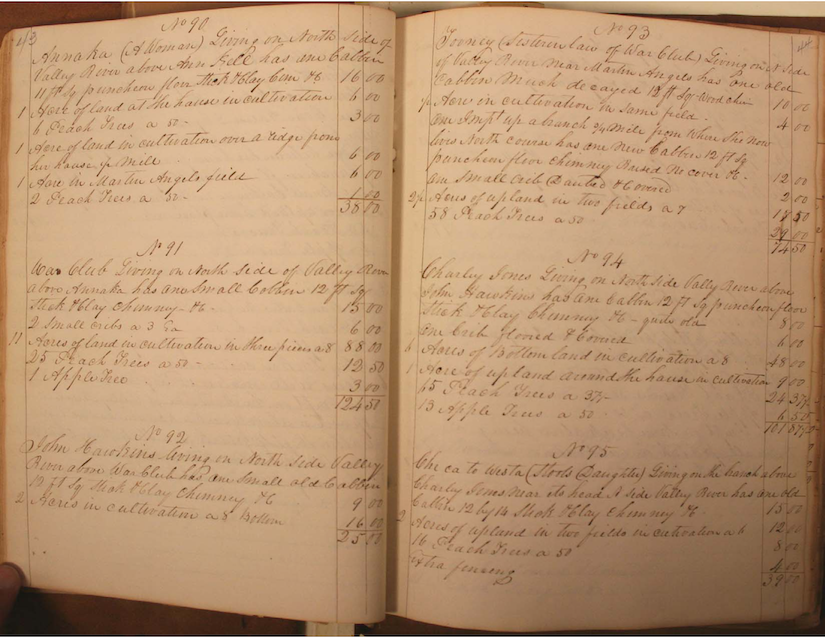 43
No 90
Annaka (A Woman) Living on North side of
Valley River above Ann Kell has one Cabbin
11 ft Sq puncheon floor Stick & Clay Chim &c 16 00
1 Acre of land at the house in cultivation 6 00
6 Peach Trees a 50 - 3 00
1 Acre of land in cultivation over a ridge from
her house pr Mill 6 00
1 Acre in Martin Angels field 6 00
2 Peach Trees a 50 - 1 00
38 00
No 91
War Club Living on North side of Valley River
above Annaka has one Small Cabbin 12 ft Sq
Stick & Clay Chimney - &c - 15 00
2 Small cribs a 3 6 00
11 Acres of land in cultivation in three pieces a 8 88 00
25 Peach Trees a 50 - 12 50
1 Apple Tree 3 00
124 50
No 92
John Hawkins living on North side Valley
River above War Club has one Small old Cabbin
12 ft Sq Stick & Clay Chimney &c 9 00
2 Acres in cultivation a 8 Bottom 16 00
25 00
44
No 93
Tooney (Sister in law of War Club) Living on N side
of Valley River Near Martin Angels has one old
Cabbin Much decayed 12 ft Sq Wood Chim 10 00
Acre in cultivation in same field - 4 00
One Impt up a branch 3/4 Mile from Where She Now
lives North course has one New Cabbin 12 ft Sq
puncheon floor Chimney Raised No cover &c - 12 00
one Small Crib Daubed & Covered 2 00
Acres of upland in two fields a 7 17 50
58 Peach Trees a 50 29 00
74 50
No 94
Charley Jones Living on North side Valley River above
John Hawkins has one Cabbin 12 ft Sq puncheon floor
Stick & Clay Chimney &c - quite old 8 00
one Crib floored & Covered 6 00
6 Acres of Bottom land in cultivation a 8 48 00
1 Acre of upland around the house in cultivation 9 00
65 Peach Trees a 37½ - 24 37½
13 Apple Trees a 50 - 6 50
101 87½
No 95
Che ca to westa (Stools Daughter) Living on the branch above
Charley Jones near its head N side Valley River has one old
Cabbin 12 by 14 Stick & Clay Chimney &c - 15 00
2 Acres of upland in two fields in cultivation a 6 12 00
16 Peach Trees a 50 8 00
Extra fencing 4 00
39 00